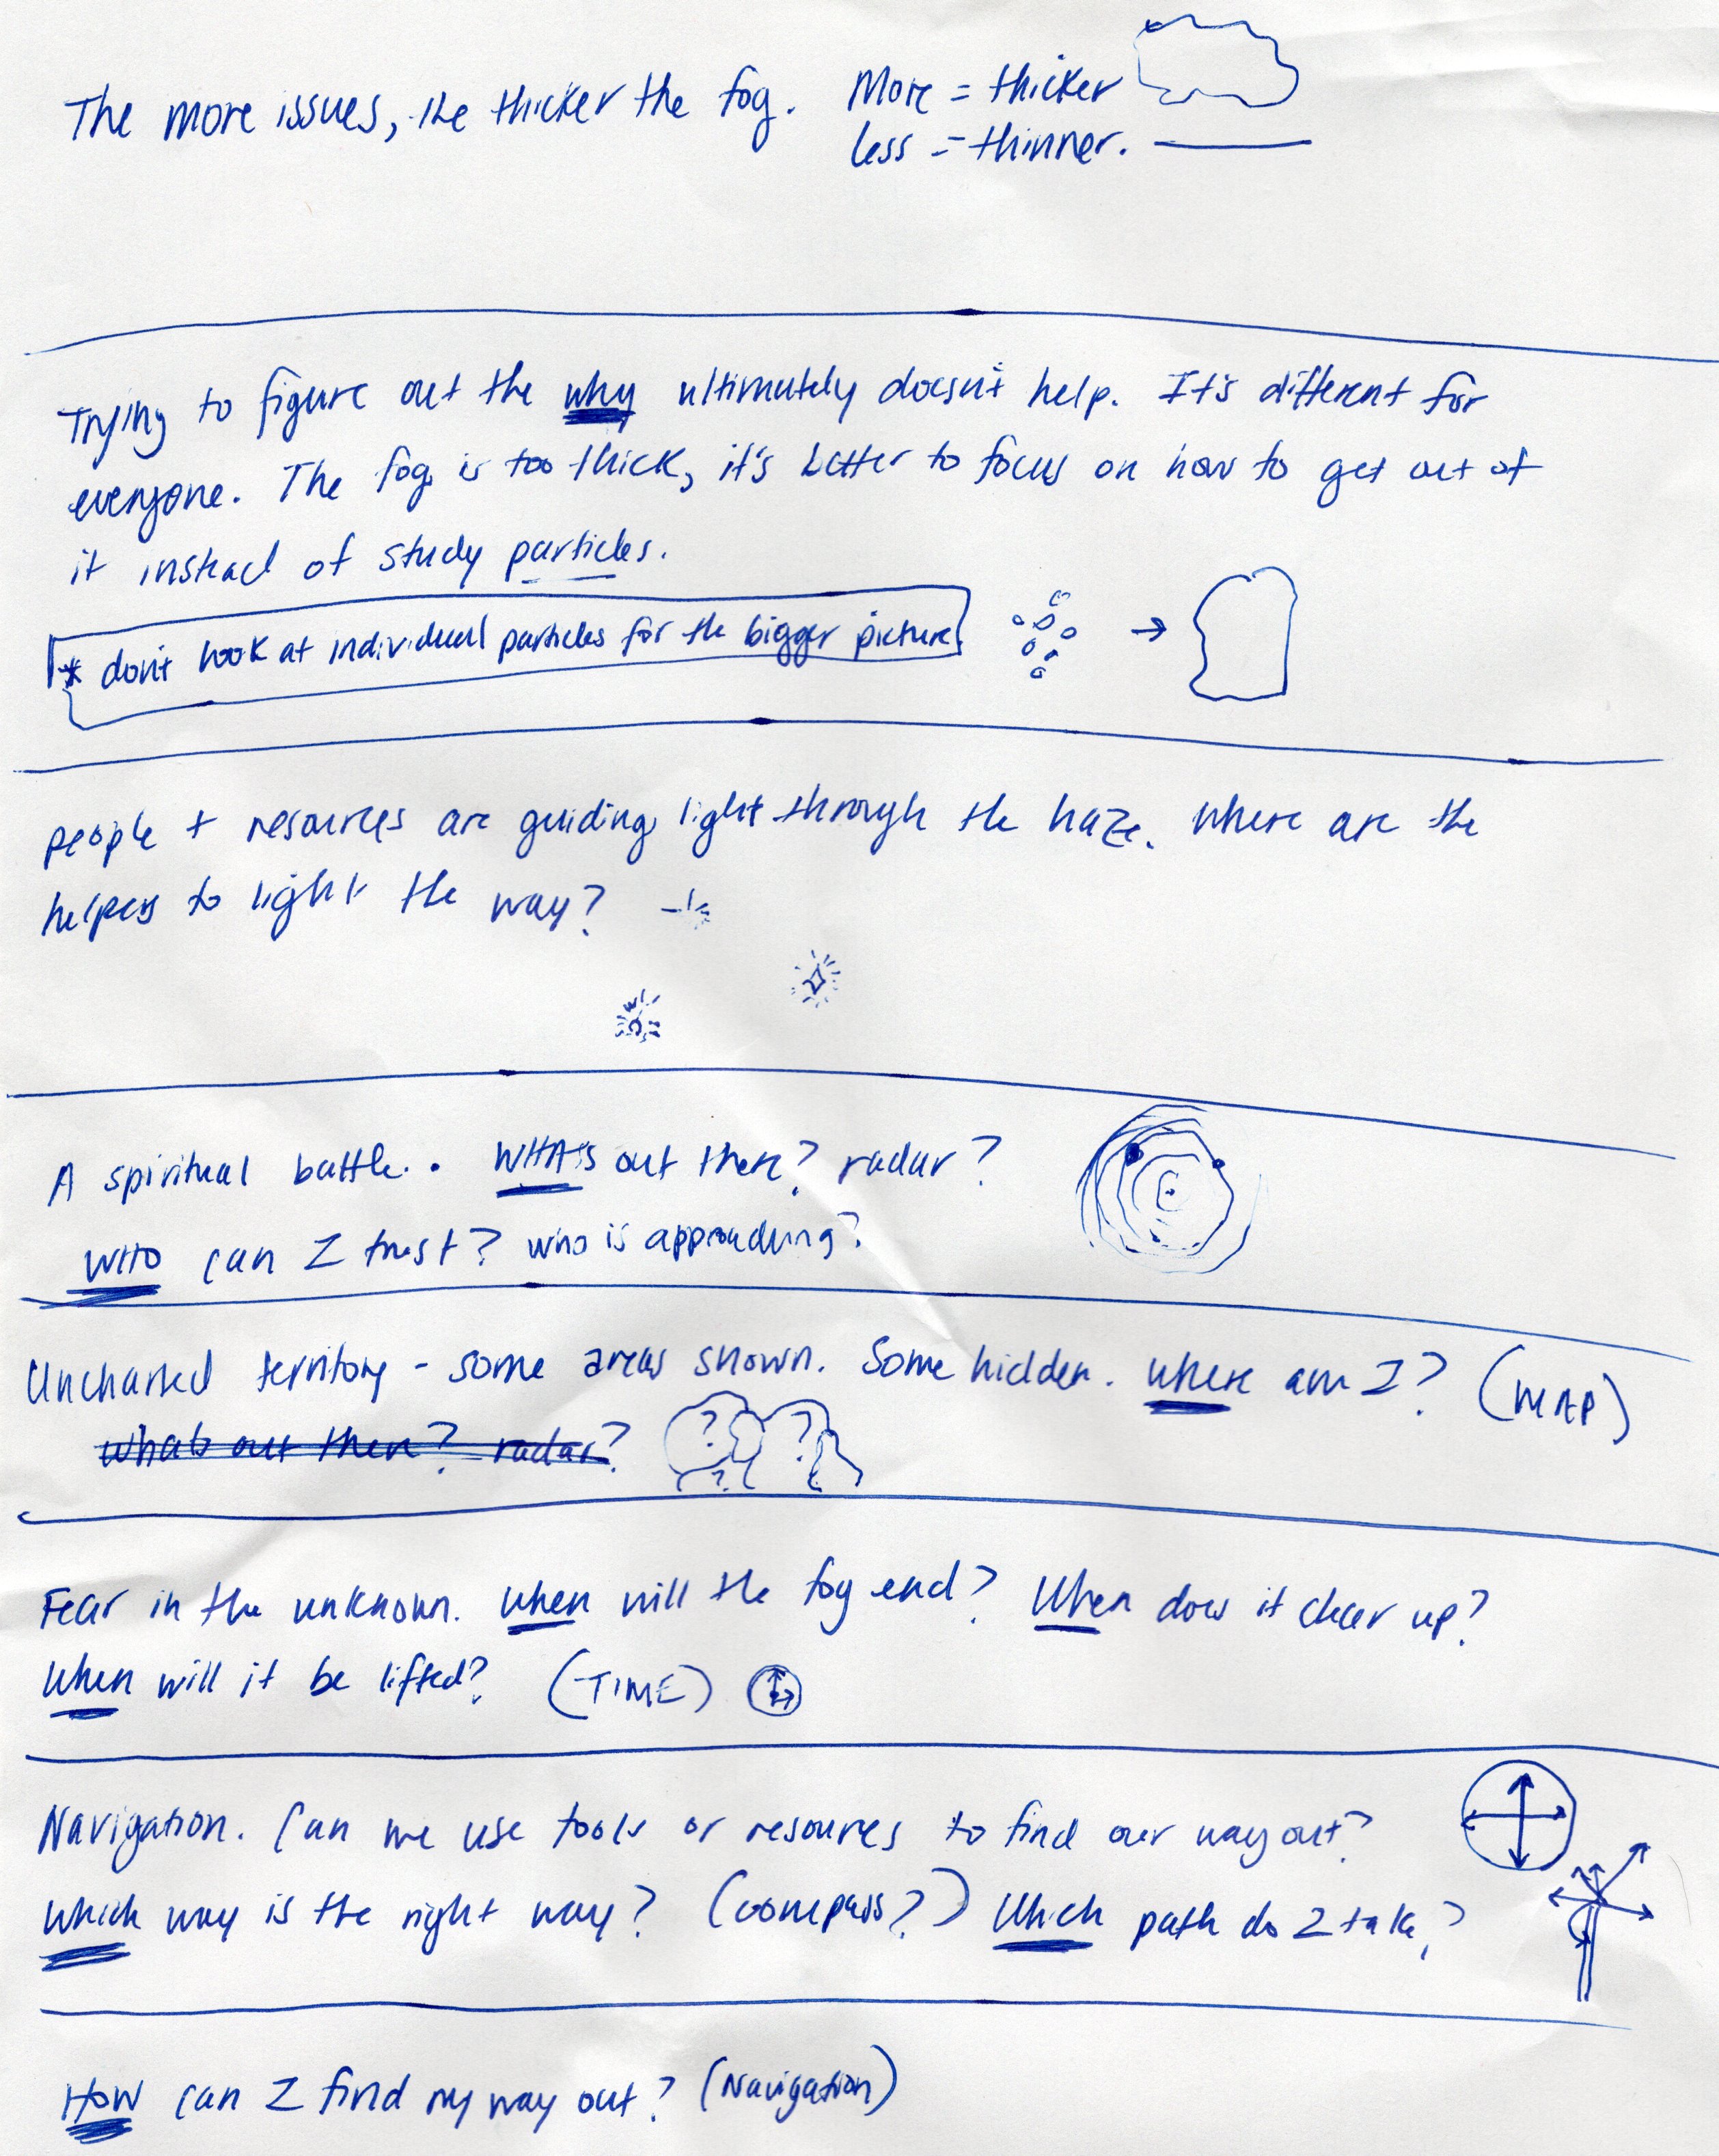 The more issues, the thicker the fog. More = thicker
less = thinner.
Trying to figure out the why ultimately doesn't help. It's different for
everyone. The fog is too thick, it's better to focus on how to get out of
it instead of study particles.
* don't look at individual particles for the bigger picture
people + resources are guiding light through the haze. Where are the
helpers to light the way?
A spiritual battle.. WHAt's out there? radar?
WHO can I trust? who is approaching?
Uncharted territory - some areas shown. Some hidden. Where am I? (MAP)
whats out there? radar?
? ? ?
Fear in the unknown. When will the fog end? When does it clear up?
When will it be lifted? (TIME)
Navigation. Can we use tools or resources to find our way out?
Which way is the right way? (compass?) Which path do I take?
HOW can I find my way out? (Navigation)